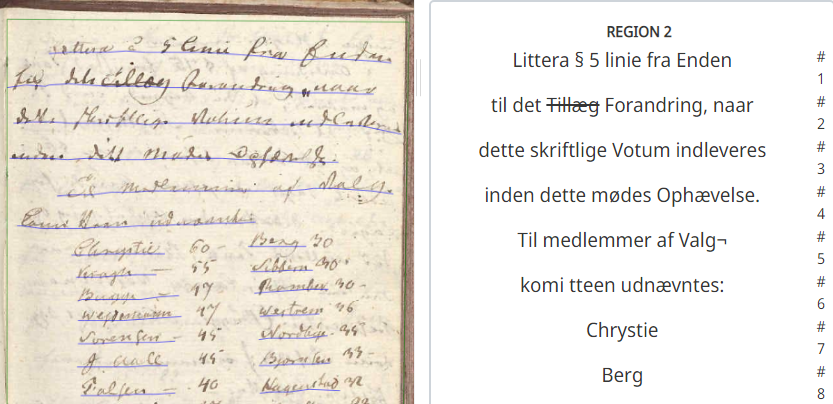 Littera § 5 linie fra Enden
til det Tillæg Forandring, naar
dette skriftlige Votum indleveres
inden dette mødes Ophævelse.
Til medlemmer af Valg¬
komi teen udnævntes:
Chrystie 60 Berg 30
Krogh 55 Sibbern 30
Bugge 47 Rambech 30
Weydemann 47 Wextrem 36
Sørensen 45 Nordbye 35
J. Aall 45 Bjørnsen 33
Falsen 40 Hagenstad 32
REGION 2
Littera § 5 linie fra Enden
#
1
til det Tillæg Forandring, naar
#
2
dette skriftlige Votum indleveres
#
3
inden dette mødes Ophævelse.
#
4
Til medlemmer af Valg¬
#
5
komi tteen udnævntes:
#
6
Chrystie
#
7
Berg
#
8